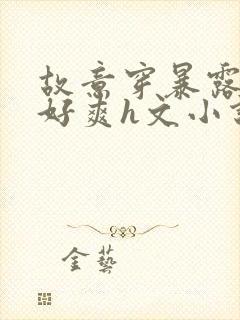 故意穿暴露
好爽h文小
金藝